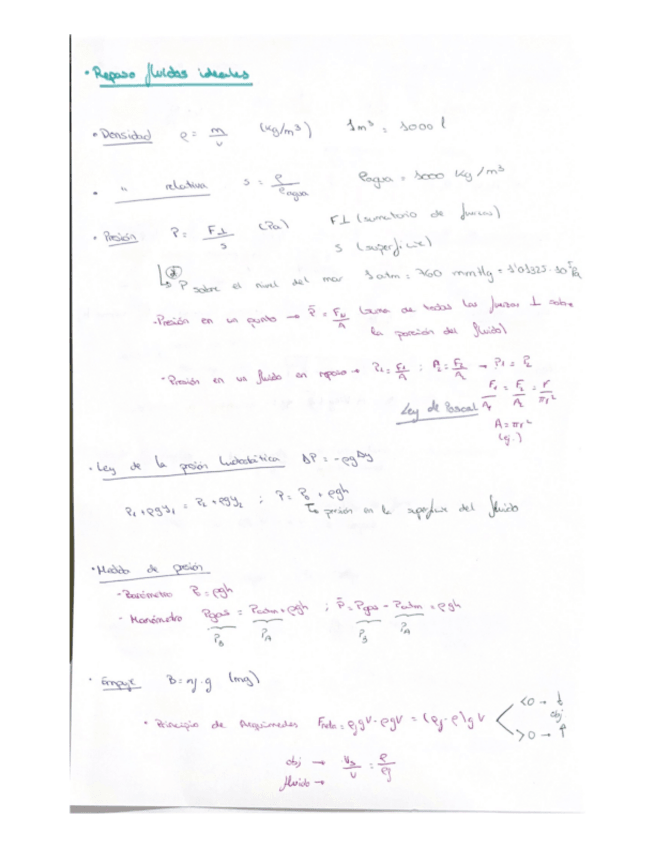 · Repaso fluidos ideales
· Densidad ρ = m/v (kg/m³) 1m³ = 1000 l
· " relativa s = ρ/ρagua ρagua = 1000 kg/m³
· Presión P = F⊥/s (Pa) F⊥ (sumatorio de fuerzas)
s (superficie)
↳ P sobre el nivel del mar 1 atm = 760 mmHg = 1'01325·10⁵ Pa
· Presión en un punto → P̄ = /A (suma de todas las fuerzas ⊥ sobre
la porción del fluido)
· Presión en un fluido en reposo → P₁ = F₁/A ; P₂ = F₂/A → P₁ = P₂
Ley de Pascal F₁/A₁ = F₂/A₂ = F/πr²
A = πr²
(ej.)
· Ley de la presión hidrostática ΔP = -ρgΔy
P₁ + ρgy₁ = P₂ + ρgy₂ ; P = P₀ + ρgh
↳ presión en la superficie del fluido
· Medida de presión
· Barómetro P₀ = ρgh
· Manómetro Pgas = Patm + ρgh ; P̄ = Pgas - Patm = ρgh
P_B P_A P_B P_A
· Empuje B = mf · g (mg)
· Principio de Arquímedes Fneta = ρfgV - ρgV = (ρf - ρ)gV < 0 → ↓
obj
> 0 → ↑
obj → Vs/V = ρ/ρf
fluido →